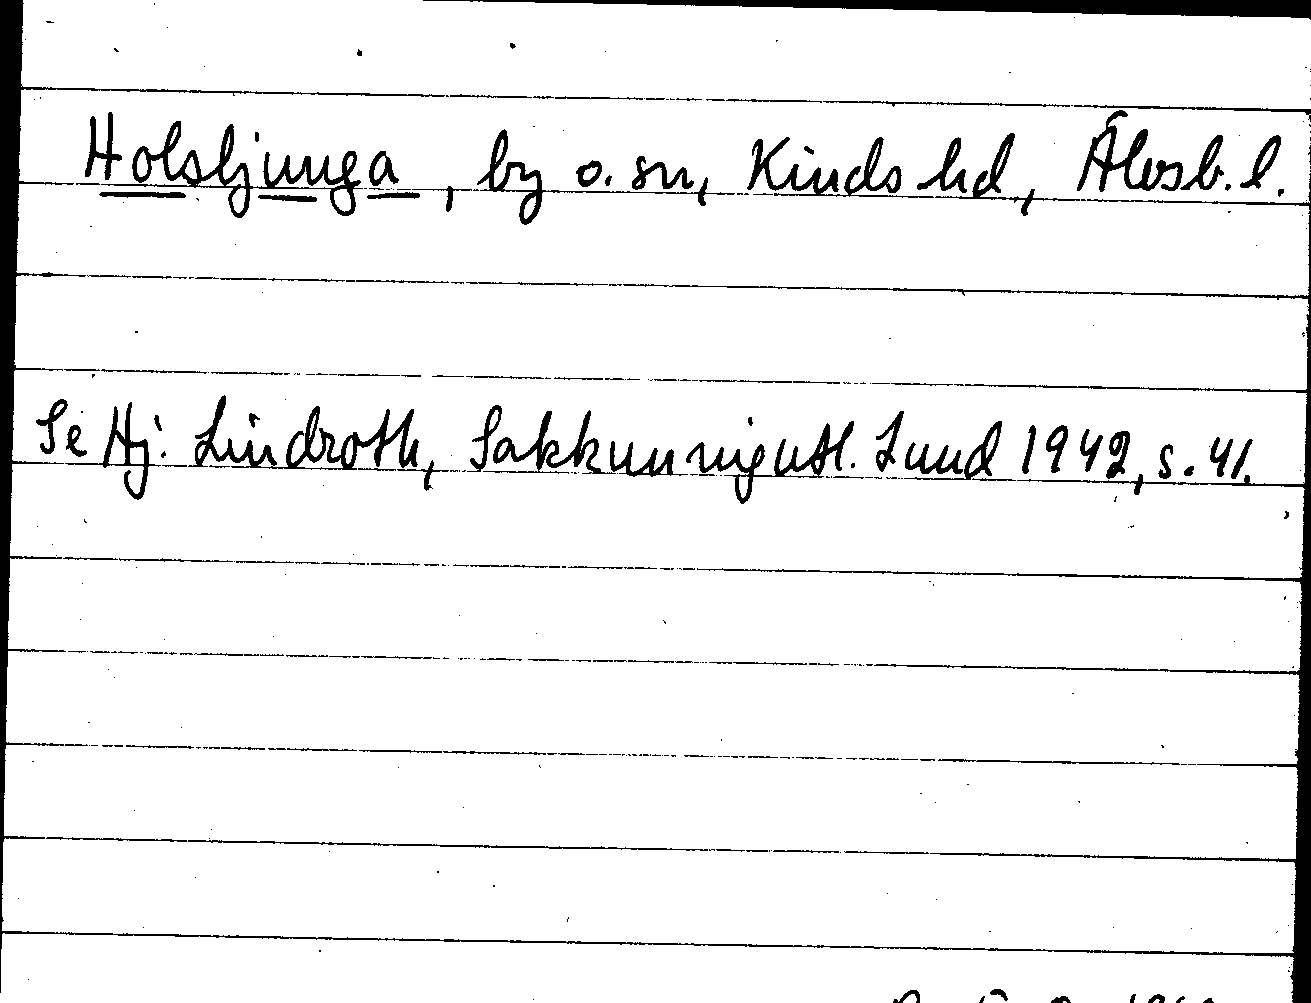 Holsljunga, by o. sn, Kinds hd, Älvsb. l.
Se Hj. Lindroth, Sakkunnigutl. Lund 1942, s. 41.